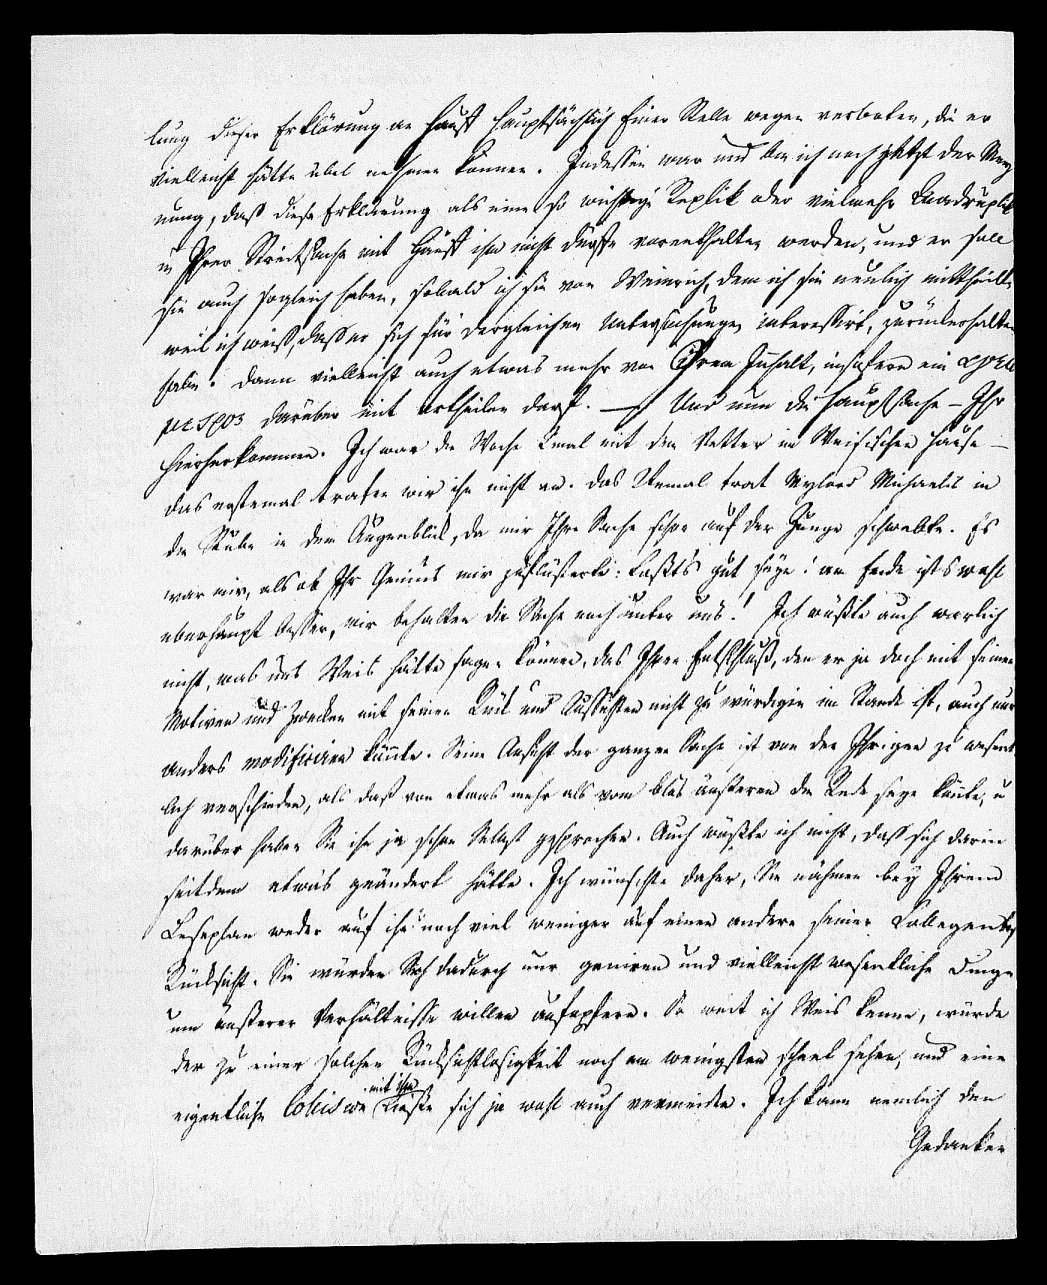 lung dieser Erklärung an Hauff hauptsächlich Einer Stelle wegen verboten, die er
vielleicht hätte übel nehmen können. Indessen war und bin ich noch jetzt der Mey
nung, daß diese Erklärung als eine so wichtige Replik oder vielmehr Quadruplik
in Ihrer Streitsache mit Hauff ihm nicht dürfte vorenthalten werden, und er soll
sie auch sogleich haben, sobald ich sie von Weinrich, dem ich sie neulich mittheilte
weil ich weiß, daß er sich für dergleichen Untersuchungen interessirt, zurükerhalten
habe. Dann vielleicht auch etwas mehr von Ihrem Inhalt, insofern ein
darüber mit urtheilen darf. — Und nun die Hauptsache – Ihr
Hierherkommen. Ich war die Woche 2mal mit dem Vetter im Weisischen Hause –
das erstemal trafen wir ihn nicht an. Das 2temal trat Mylord Michaelis in
die Stube in dem Augenblick, da mir Ihre Sache schon auf der Zunge schwebte. Es
war mir, als ob Ihr Genius mir zuflüsterte: Laßt's gut seyn! am Ende ist's wohl
überhaupt besser, wir behalten die Sache noch unter uns! Ich wüßte auch warlich
nicht, was uns Weis hätte sagen können, das Ihren Entschluß, den er ja doch mit seinen
Motiven und Zwecken mit seinem und nicht zu würdigen im Stande ist, auch nur
anders modificiren könnte. Seine Ansicht der ganzen Sache ist von der Ihrigen zu wesent
lich verschieden, als daß von etwas mehr als vom blos äußeren die Rede seyn könnte, u
darüber haben Sie ihn ja schon Selbst gesprochen. Auch wüßte ich nicht, daß sich darin
seitdem etwas geändert hätte. Ich wünschte daher, Sie nähmen bey Ihrem
Leseplan weder auf ihn noch viel weniger auf einen andern seiner Collegen
Rücksicht. Sie würden Sich dadurch nur geniren und vielleicht wesentliche Dinge
um äußerer Verhältnisse willen aufopfern. So weit ich Weis kenne, würde
der zu einer solchen Rücksichtlosigkeit noch am wenigsten scheel sehen, und eine
eigentliche Collision mit ihm ließe sich ja wohl auch vermeiden. Ich kann nemlich den
Gedanken